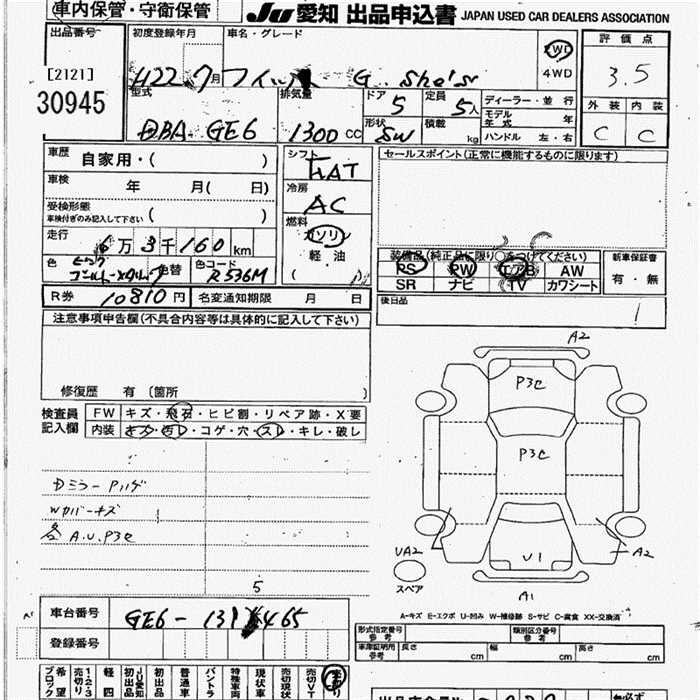 車内保管・守衛保管
JU 愛知 出品申込書 JAPAN USED CAR DEALERS ASSOCIATION
出品番号
[2121]
30945
初度登録年月
H22 7月
車名・グレード
フィット G She's
2WD
4WD
評価点
3.5
外装 内装
C C
型式
DBA GE6
排気量
1300 CC
ドア
5
定員
5人
形状
SW
積載
kg
ディーラー・並行
モデル年式 年
ハンドル 左・右
車歴 自家用・( )
車検 年 月( 日)
受検形態
車検付きのみ記入して下さい ( )
走行 6万3千160km
色
色替
色コード
R536M
シフト
FAT
冷房
AC
燃料
ガソリン
軽油
( )
R券 10810円 名変通知期限 月 日
セールスポイント(正常に機能するものに限ります)
装備品(純正品に限り○をつけてください)
PS PW エアB AW
SR ナビ TV カワシート
新車保証書
有・無
後日品
注意事項申告欄(不具合内容等は具体的に記入して下さい)
修復歴 有 〔箇所 〕
検査員
記入欄
FW キズ・飛石・ヒビ割・リペア跡・X要
内装 キズ・汚レ・コゲ・穴・スレ・キレ・破レ
Dミラー Pハゲ
Wカバーキズ
各 A.U.P3セ
5
A2
P3セ
P3セ
U1
UA2
A2
A1
スペア
A-キズ E-エクボ U-凹み W-補修跡 S-サビ C-腐食 XX-交換済
車台番号
登録番号
形式指定番号
参考
類別区分番号
参考
車庫証明用
参考
長さ cm 幅 cm 高さ cm
希望ブロック
売切り1・2・3
軽四
初出品
JU愛知初出品
初出品
普通車
バントラ
特殊車両
現状車
売切現状
売切VT